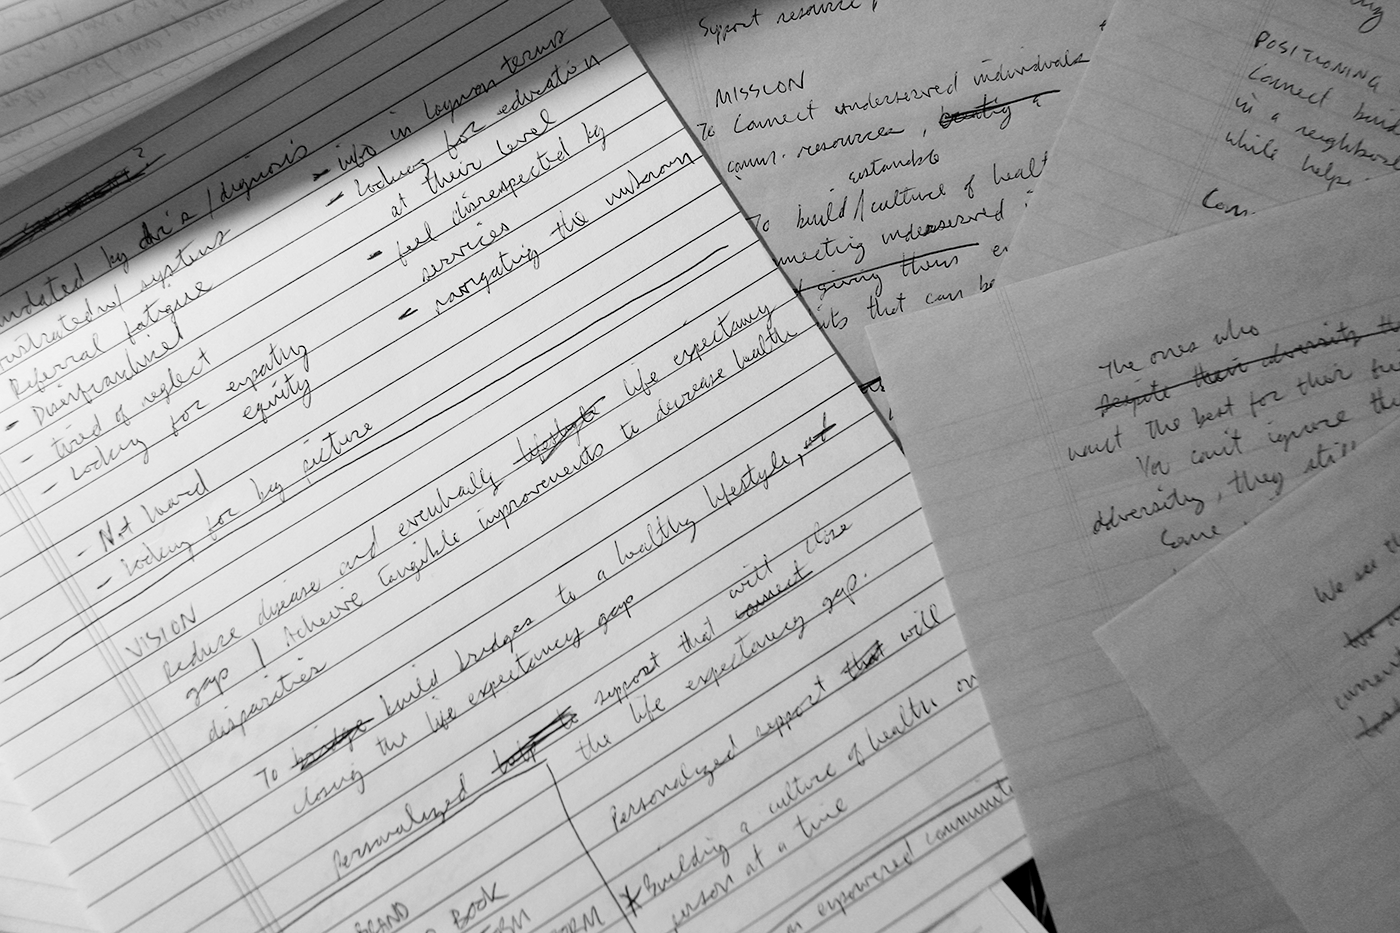 by dr's / dignosis
frustrated w/ systems
Referral fatigue
- Disenfranchised
- tired of neglect
- Looking for empathy
equity
- Not heard
- Looking for big picture
- info in layman terms
- Looking for education
at their level
- feel disrespected by
services
- navigating the unknown
VISION
Reduce disease and eventually lifestyle life expectancy
gap / Achieve tangible improvements to decrease health
disparities
To bridge build bridges to a healthy lifestyle, of
closing the life expectancy gap
Personalized help to support that connect will close
the life expectancy gap.
Personalized support that will
* Building a culture of health on
person at a time
empowered communit
BRAND BOOK
Support resource
MISSION
To Connect underserved individuals
comm. resources, a
sustainable
To build / culture of healt
nnecting underserved
giving them
that can be
POSITIONING
Connect
in a neighborh
while helpi
The ones who
despite their adversity
want the best for their
You can't ignore the
adversity, they still
Came
We see th
current